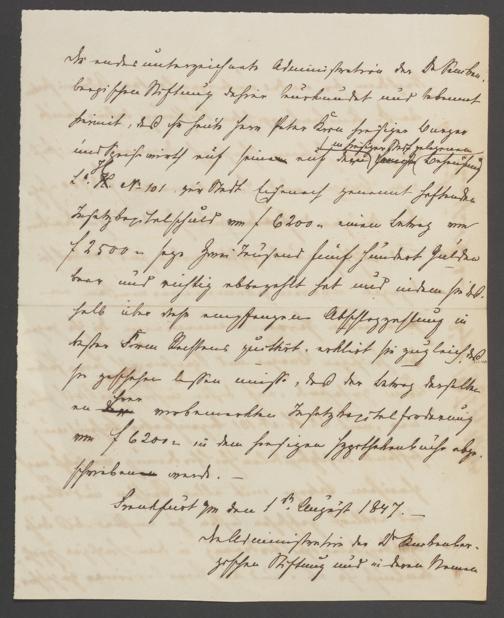 Die endesunterzeichnete Administration der Dr Senken-
bergischen Stiftung dahier beurkundet und bekennt
hiermit, daß ihr heute Herr Peter Kron hiesiger Bürger
und Speisewirth auf seine auf der
in hiesiger Stadt gelegenen Behausung
Lit. No 101. zur Stadt Eisenach genannt haftenden
Insatzkapitalschuld von f 6200 „ einen Betrag von
f 2500 „ sage Zwei Tausend fünf Hundert Gulden
baar und richtig abbezahlt hat und indem sie des-
halb über diese empfangene Abschlagszahlung in
bester Form Rechtens quittirt, erklärt sie zugleich, daß
sie geschehen lassen müsse, daß der Betrag derselben
an ihrer vorbemerkten Insatzkapitalforderung
von f 6200 „ in dem hiesigen Hypothekenbuche abge-
schrieben werde. —
Frankfurt a/m den 1ten August 1847. —
Die Administration der Dr Senkenber-
gischen Stiftung und in deren Namen